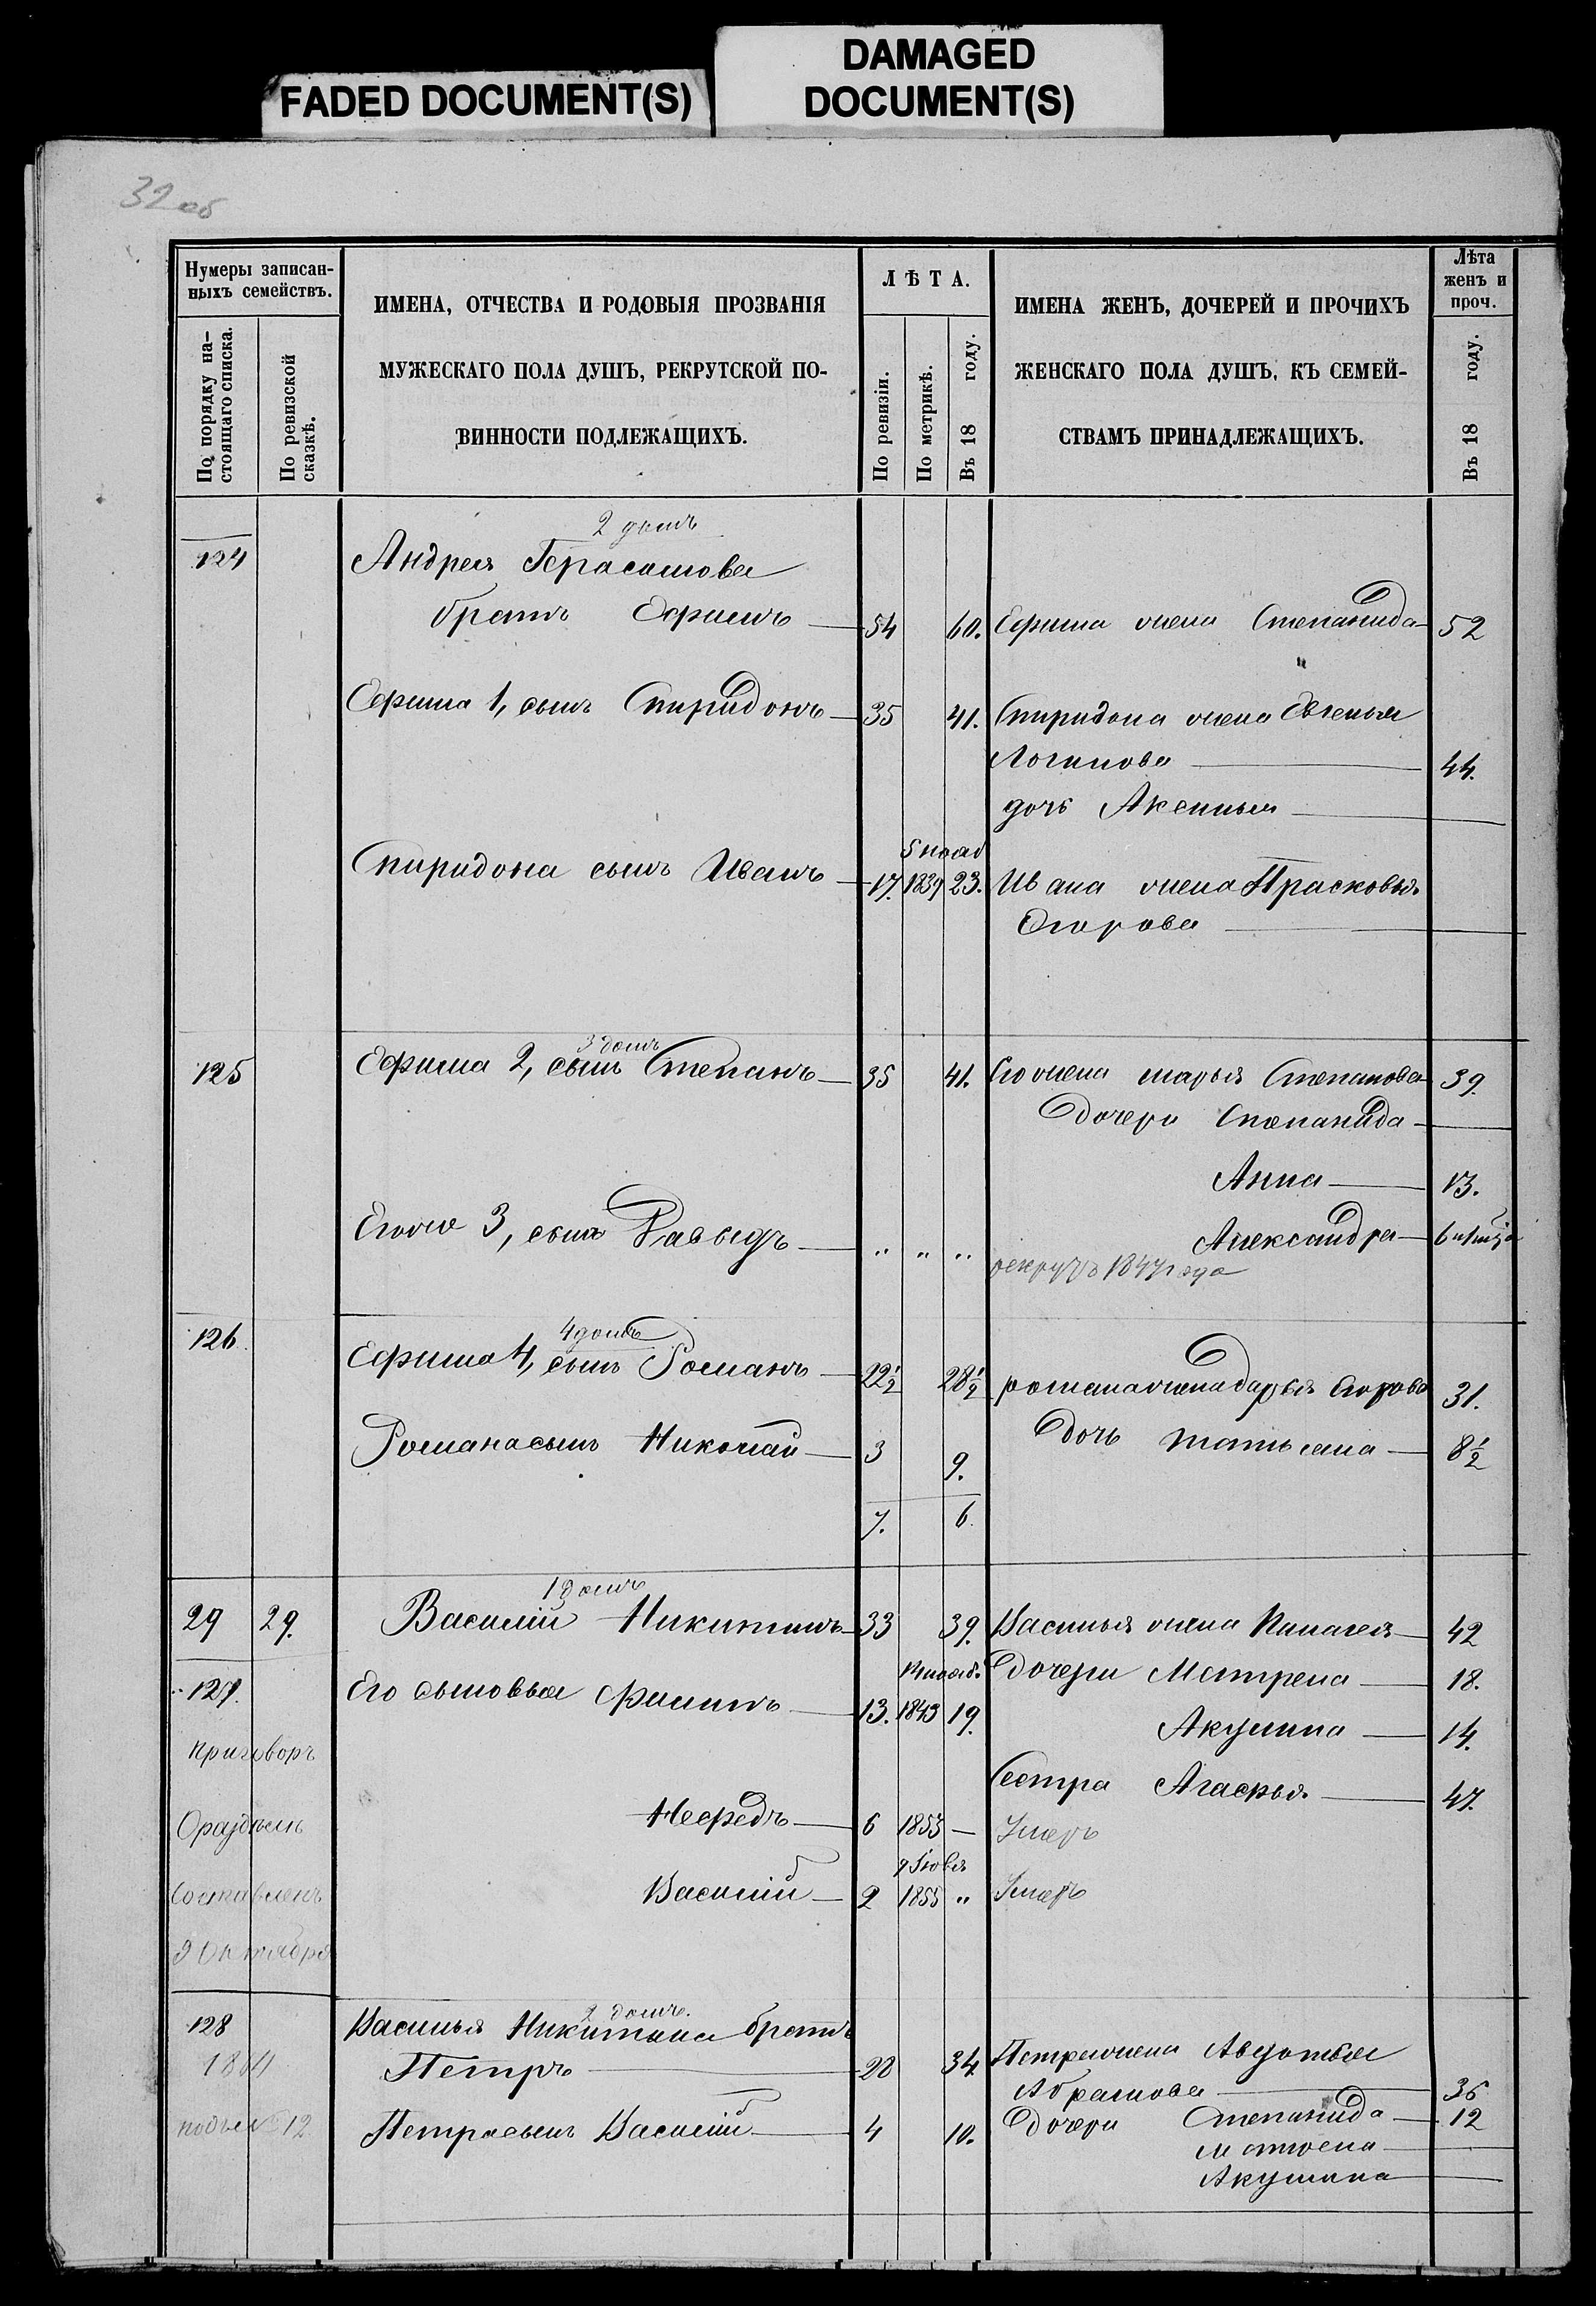 FADED DOCUMENT(S)
DAMAGED
DOCUMENT(S)
32 об
Нумеры записан-
ныхъ семействъ.
По порядку на-
стоящаго списка.
По ревизской
сказкѣ.
ИМЕНА, ОТЧЕСТВА И РОДОВЫЯ ПРОЗВАНІЯ
МУЖЕСКАГО ПОЛА ДУШЪ, РЕКРУТСКОЙ ПО-
ВИННОСТИ ПОДЛЕЖАЩИХЪ.
ЛѢТА.
По ревизіи.
По метрикѣ.
Въ 18 году.
ИМЕНА ЖЕНЪ, ДОЧЕРЕЙ И ПРОЧИХЪ
ЖЕНСКАГО ПОЛА ДУШЪ, КЪ СЕМЕЙ-
СТВАМЪ ПРИНАДЛЕЖАЩИХЪ.
Лѣта
женъ и
проч.
Въ 18 году.
2 домъ
124 Андрея Герасимова
братъ Ефимъ 54 60. Ефима жена Степанида 52
Ефима 1, сынъ Спиридонъ 35 41. Спиридона жена Евгенья
Логинова 44.
дочь Аксинья
5 нояб
Спиридона сынъ Иванъ 17. 1839 23. Ивана жена Прасковья
Егорова
3 домъ
125 Ефима 2, сынъ Степанъ 35 41. Его жена марья Степанова 39.
Дочери Степанида
Анна 13.
Александра 6 мѣся
Егоже 3, сынъ Давыдъ " " " рекрутъ 1847 года
4 домъ
126. Ефима 4, сынъ Романъ 22½ 28½ романа жена дарья Егорова 31.
Романа сынъ Николай 3 9. Дочь татьяна 8½
7. 6.
1 домъ
29 29. Василій Никитинъ 33 39. Василья жена Палагея 42
127. Его сыновья Филипъ 13. 1843 19. Дочери Матрена 18.
Приговоръ
Акулина 14.
Сестра Агафья 47.
О раздѣлѣ Нефедъ 6 1853 — Умеръ
Составленъ Василій 2 1855 " Умеръ
9 Октября
2 домъ.
128 Василья Никитина братъ
1861 Петръ 28 34 Петра жена Авдотья
Абрамова 36
Петра сынъ Василій 4 10. Дочери Степанида 12
№ 12
Матрена
Акулина